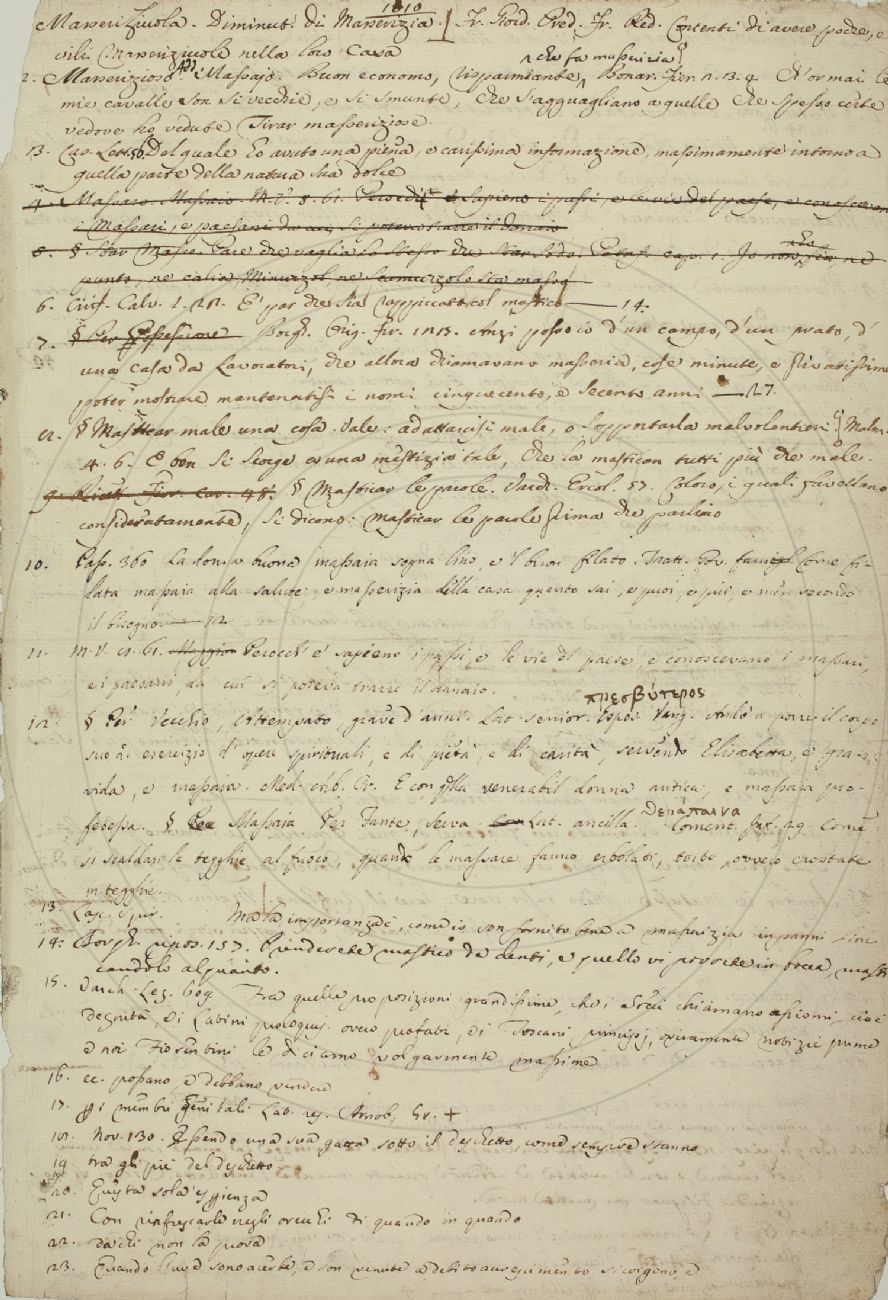 1010
Masserizuola. Diminut. di Masserizia. Fr. Giord. Pred. Fr. Red. Contenti di avere poche, e
vili Masserizuole nella loro Casa
che fa masserizia
2. Masserizioso Add. Massajo. Buon economo, Risparmiante, Bonar. Fier. 2. 3. 4. Ch'ormai le
mie cavalle son sì vecchie, e sì smunte, che s'agguagliano a quelle che spesso certe
vedove ho vedute Tirar masseriziose.
13. Car. Lett. Del quale ho avuto una piena, e carissima informazione, massimamente intorno a
quella parte della natura sua dolce
4. Massaro. Massaio M. V. 8. 61. Perocchè sapieno i passi, e le vie del paese, e conoscevano
i Massari, e paesani da cui si poteva trarre il danaio
punto, nè calia, Minuzzol, nè Scamuzzolo
6. Ciriff. Calv. 1. 22. E' par che sia rappiccato col mastico — 14.
7. § Per Possessione Borgh. Orig. Fir. 123. Anzi possoio d'un campo, d'un prato, d'
una casa da Lavoratori, che allora chiamavano masseria, cose minute, e privatissime
poter mostrare mantenutisi i nomi cinquecento, e secento anni — 27.
§ Masticar male una cosa. Vale: adattarcisi male, o sopportarla malvolentieri Malm.
4. 6. E ben si scorge a una mestizia tale, Che la mastican tutti più che male.
9. § Masticar le parole. Varch. Ercol. 57. Coloro, i quali favellano
consideratamente, si dicono: masticar le parole prima che parlino
10. Pass. 360 La donna buona massaia sogna lino, e 'l buon filato. Tratt. Gov. famigl. Come fi-
data massaia alla salute: e masserizia della casa quanto sai, e puoi, e più, e men secondo
il bisogno. — 12
11. M. V. 8. 61. Maggior Perocchè sapieno i passi, e le vie del paese, e conoscevano i massari,
e i paesani, da cui si poteva trarre il danaio.
πρεσβύτερος
12. § Per Vecchio, Attempato, grave d'anni. Lat. senior. Espos. Vang. Andò a porre il corpo
suo a esercizio d'opere spirituali, e di pietà, e di carità, servendo Elisabetta, e gra-
vida, e massaia. Med. Arb. Cr. E con quella venerabil donna antica, e massaia pro-
θεράπαινα
fetessa. § Per Massaia Per Fante, Serva. Lat. ancilla. Coment. Inf. 29. Come
si scaldan le tegghie al fuoco, quando le massare fanno erbolati, torte, ovvero crostate
in tegghie.
13. Lasc. Spir. Ma la importanza è, come io son fornito bene a masserizia in panni lini
14. Borgh. ripos. 157. Prenderete mastico da denti, e quello vi porrete in bocca, masti
candolo alquanto.
15. Varch. Lez. 609. Tra quelle proposizioni grandissime, che i Greci chiamano assiomi, cioè
degnità, e i Latini proloquj, ovvero profati, e i Toscani principj, o veramente notizie prime
e noi Fiorentini le diciamo volgarmente massime
16. ec. possano, e debbano vendere
17. pi membri genitali. Lat. Arnob. Gr. +
18. Nov. 130. Essendo una sua gatta sotto il deschetto, come sempre stanno
19. tra gli piè del deschetto
20. Questa sola esperienza
21. Con rinfrescarle negli orecchi di quando in quando
22. da chi non la prova
23. Quando l'uve sono acerbe, e son venute a debito accrescimento si colgono, e